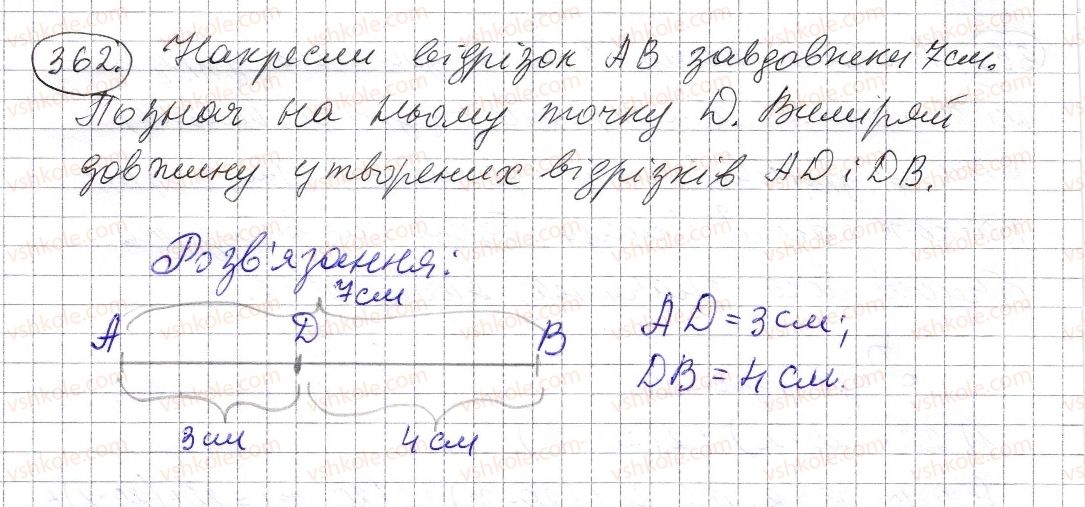 362. Накресли відрізок АВ завдовжки 7см.
Познач на ньому точку D. Виміряй
довжину утворених відрізків AD і DB.
Розв'язання:
7см
A D B
3см 4см
AD = 3см;
DB = 4см.